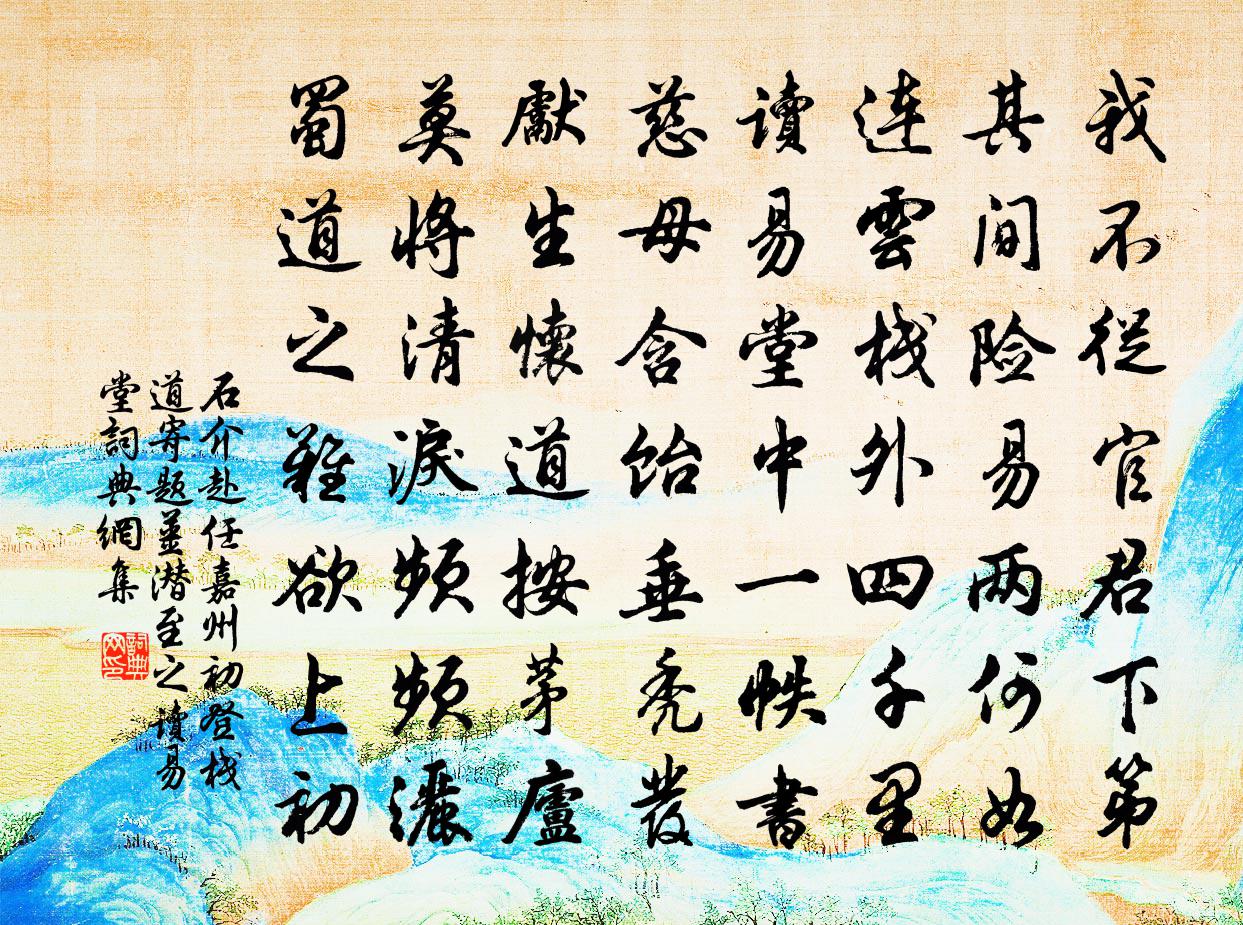 我不從官君下第
其間险易两何如
連雲棧外四千里
讀易堂中一帙書
慈母含飴垂秃發
獻生懷道按茅廬
莫將清淚頻頻灑
蜀道之難欲上初
石介赴任嘉州初登棧
道寄題姜潜至之讀易
堂詞典網集
詞典網印